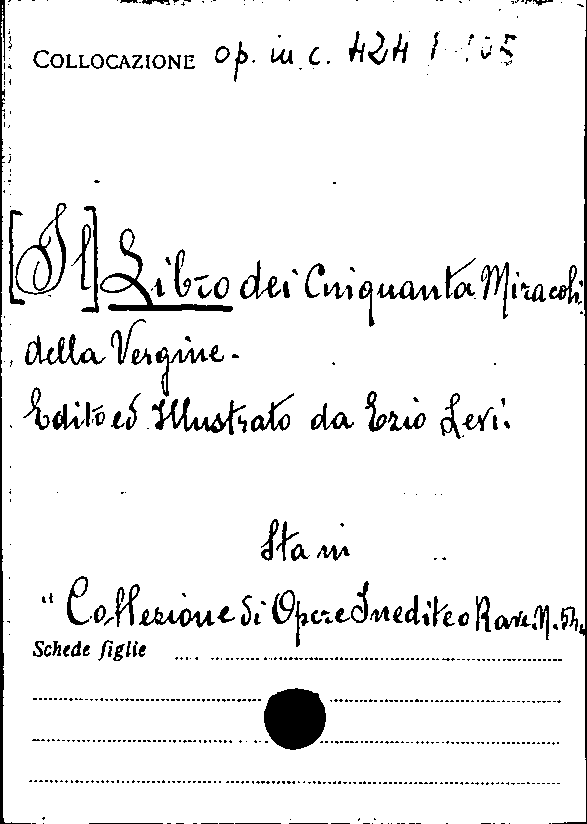 COLLOCAZIONE op. in c. 424
[Il] Libro dei Cinquanta Miracoli
della Vergine.
Edito ed Illustrato da Ezio Levi.
Sta in
"Collezione di Opere Inedite o Rare. N.
Schede figlie